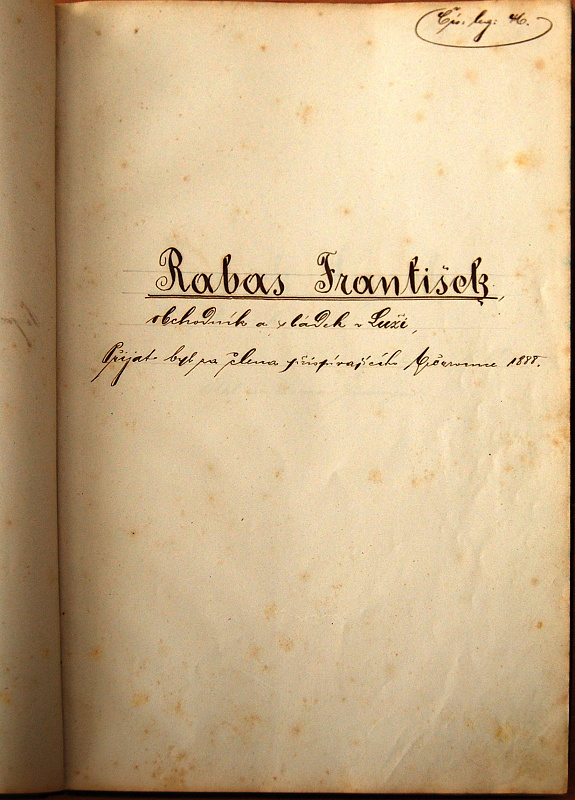 Čís. leg: 46.
Rabas František,
obchodník a sládek v Luži,
Přijat byl za člena přispívajícího července 1888.